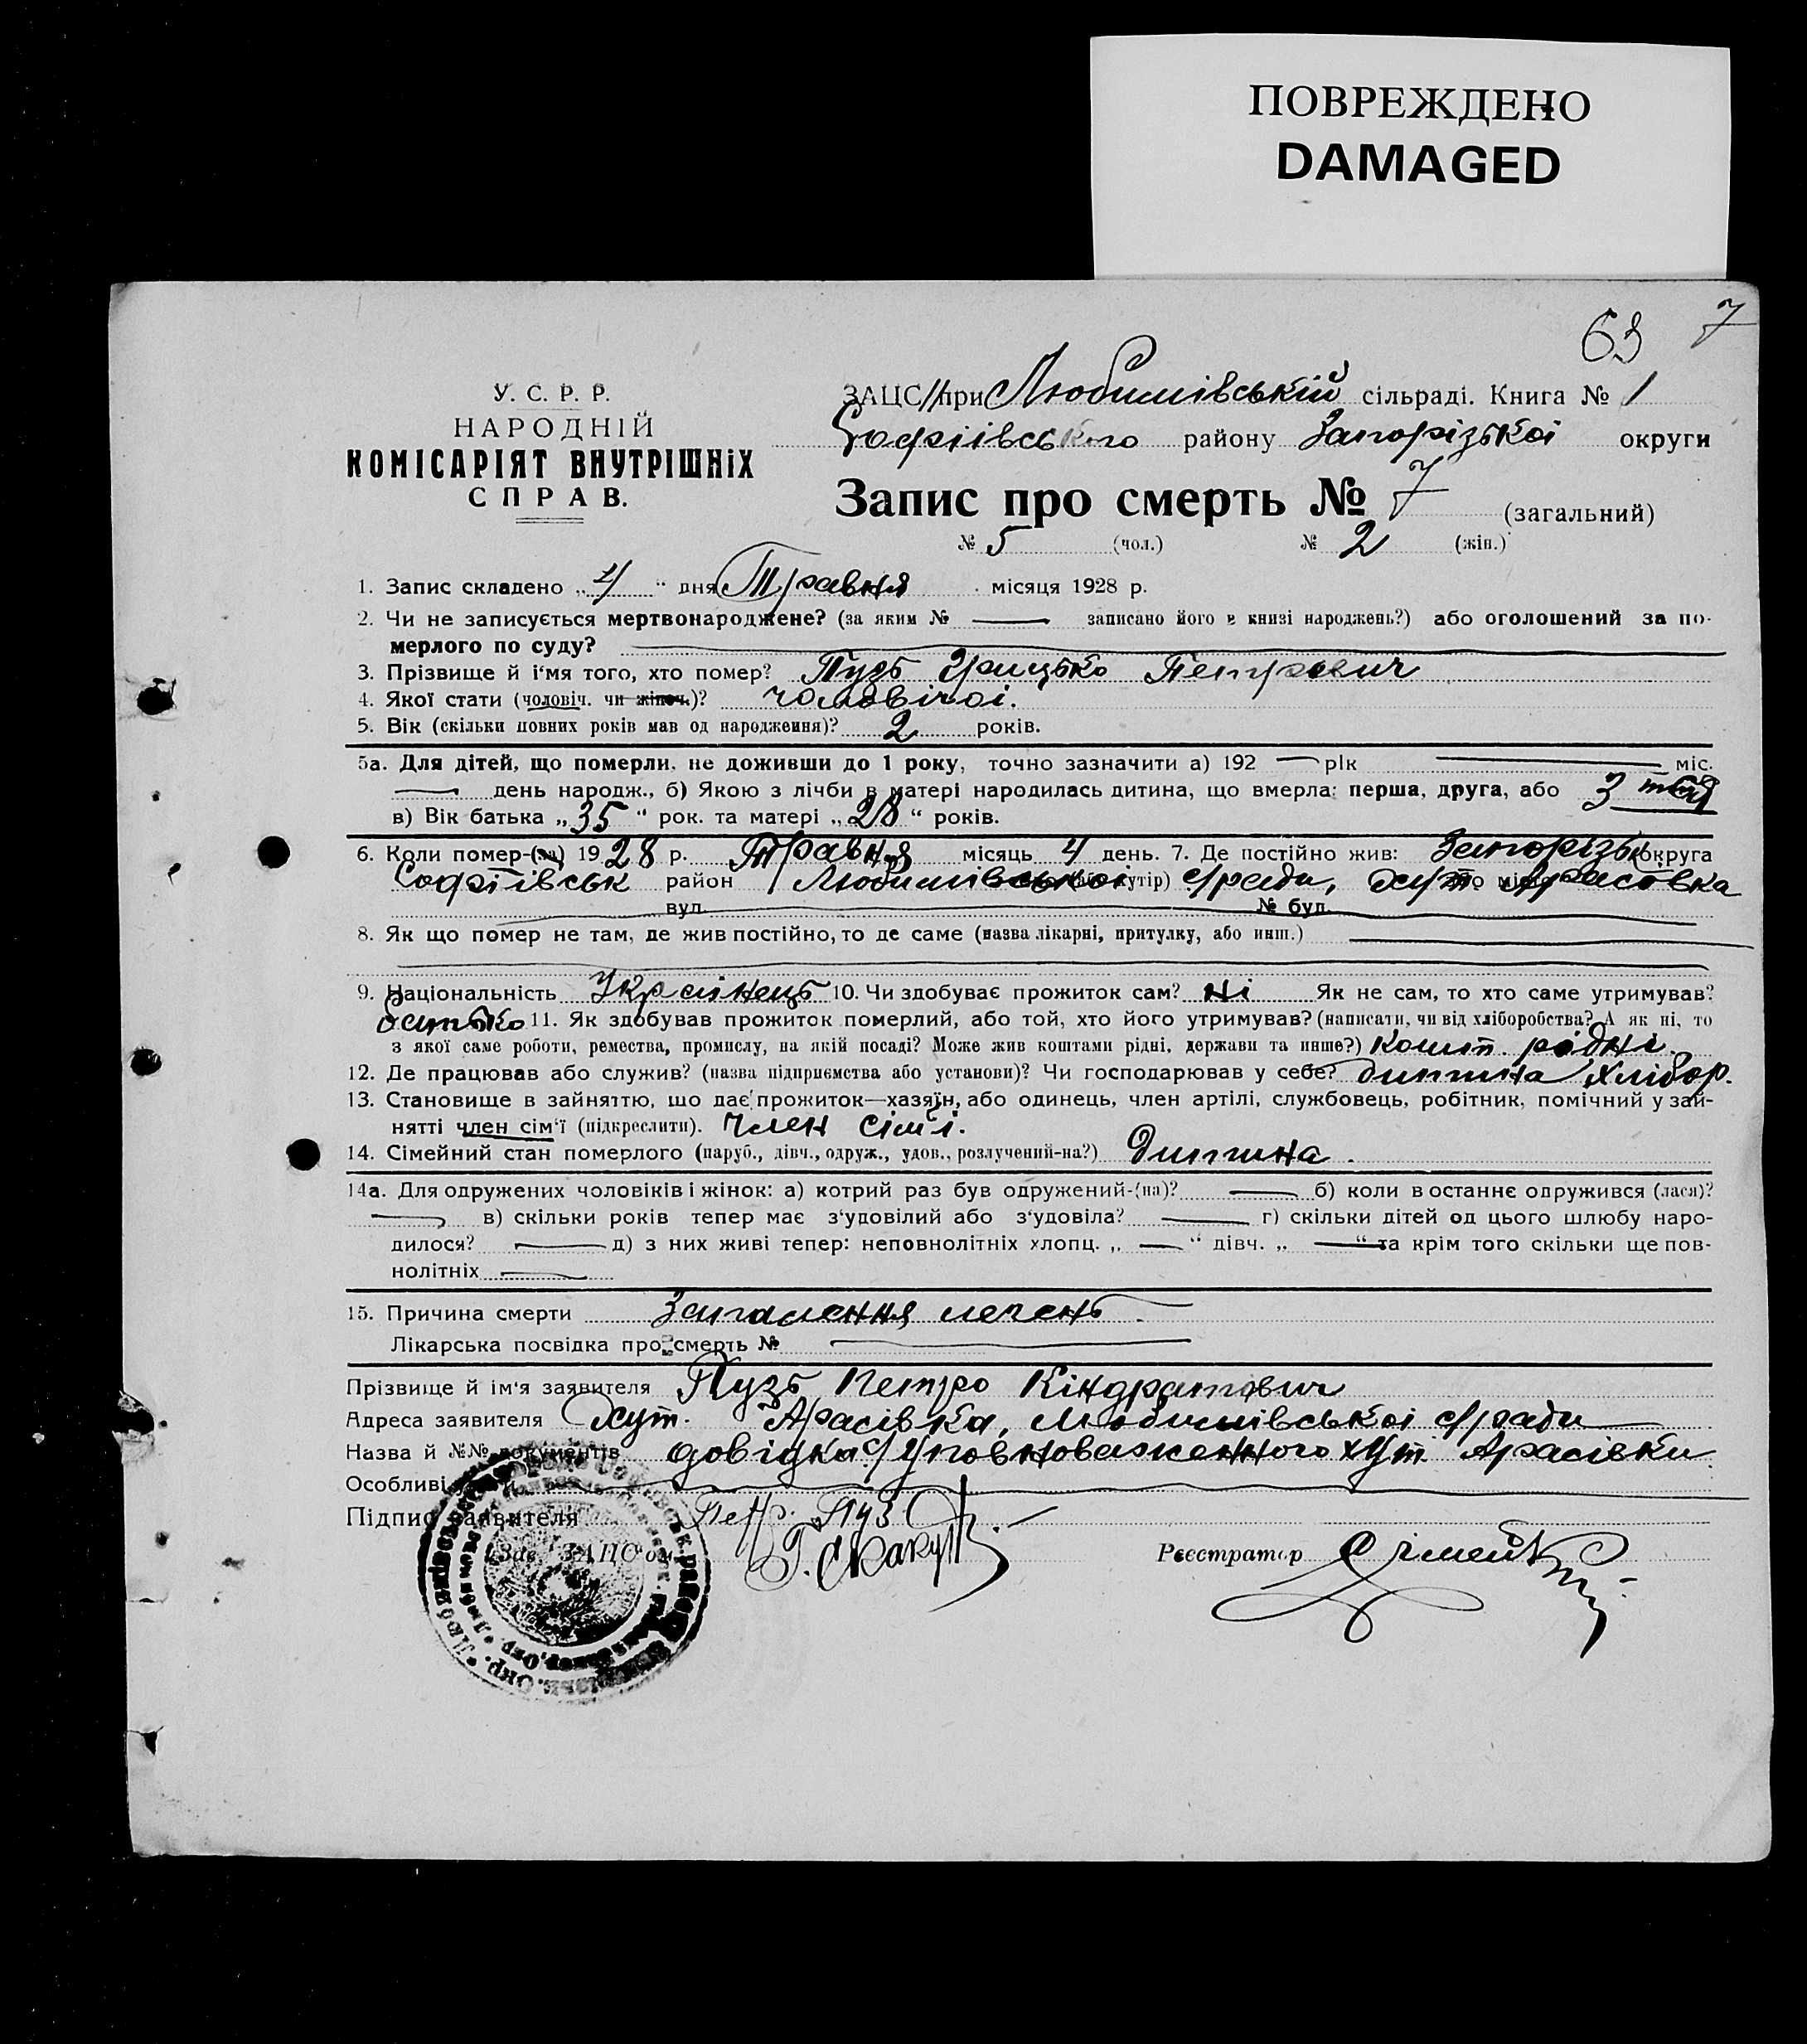 ПОВРЕЖДЕНО
DAMAGED
63 7
У. С. Р. Р.
НАРОДНІЙ
КОМІСАРІЯТ ВНУТРІШНІХ
СПРАВ.
ЗАЦС при Любимівській сільраді. Книга № 1
Софіївського району Запорізької округи
Запис про смерть № 7 (загальний)
№ 5 (чол.) № 2 (жін.)
1. Запис складено „ 4 “ дня Травня місяця 1928 р.
2. Чи не записується мертвонароджене? (за яким № — записано його в книзі народжень?) або оголошений за по-
мерлого по суду? —
3. Прізвище й і'мя того, хто помер? Пузь Грицько Петрович
4. Якої стати (чоловіч. чи жіноч.)? чоловічої.
5. Вік (скільки повних років мав од народження)? 2 років.
5а. Для дітей, що померли, не доживши до 1 року, точно зазначити а) 192 — рік — міс.
— день народж., б) Якою з лічби в матері народилась дитина, що вмерла: перша, друга, або 3
в) Вік батька „ 35 “ рок. та матері „ 28 “ років.
6. Коли помер-(ла) 1928 р. Травня місяць 4 день. 7. Де постійно жив: Запорізьк округа
Софіївськ район Любимівської с/ради, хут.
вул. № буд.
8. Як що помер не там, де жив постійно, то де саме (назва лікарні, притулку, або инш.) —
9. Національність Українець 10. Чи здобуває прожиток сам? Ні Як не сам, то хто саме утримував?
батько 11. Як здобував прожиток померлий, або той, хто його утримував? (написати, чи від хліборобства? А як ні, то
з якої саме роботи, ремества, промислу, на якій посаді? Може жив коштами рідні, держави та инше?) Кошт. рідні
12. Де працював або служив? (назва підприємства або установи)? Чи господарював у себе? дитина хлібор.
13. Становище в зайняттю, що дає прожиток—хазяїн, або одинець, член артілі, службовець, робітник, помічний у зай-
нятті член сім'ї (підкреслити). Член сім'ї.
14. Сімейний стан померлого (паруб., дівч., одруж., удов., розлучений-на?) Дитина.
14а. Для одружених чоловіків і жінок: а) котрий раз був одружений-(на)? — б) коли в останнє одружився (лася)?
— в) скільки років тепер має з'удовілий або з'удовіла? — г) скільки дітей од цього шлюбу наро-
дилося? — д) з них живі тепер: неповнолітніх хлопц. „ — “ дівч. „ — “ та крім того скільки ще пов-
нолітніх —
15. Причина смерти Запалення легень.
Лікарська посвідка про смерть № —
Прізвище й ім'я заявителя Пузь Петро Кіндратович
Адреса заявителя хут. Арасівка, Любимівської с/ради
Назва й №№ документів довідка с/уповноваженного хут. Арасівки
Особливі
Підпис заявителя Петр. Пузь
Зав. ЗАЦС'ом
Реєстратор